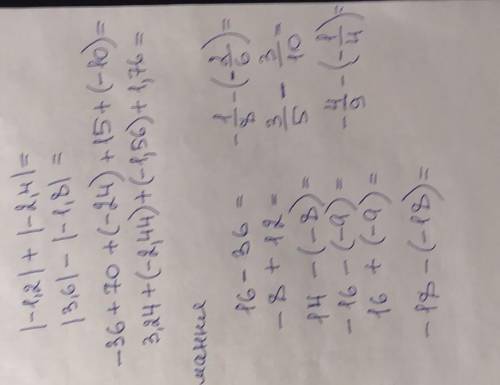 |-1,2| + |-2,4| =
|3,6| - |-1,8| =
-36 + 70 + (-24) + 15 + (-10) =
3,24 + (-2,44) + (-1,56) + 1,76 =
мання
16 - 36 =
- 8 + 12 =
14 - (-8) =
- 16 - (-9) =
16 + (-9) =
- 18 - (-18) =
- 1/8 - (- /6) =
3/5 - 3/10 =
- 4/9 - (- 1/4) =